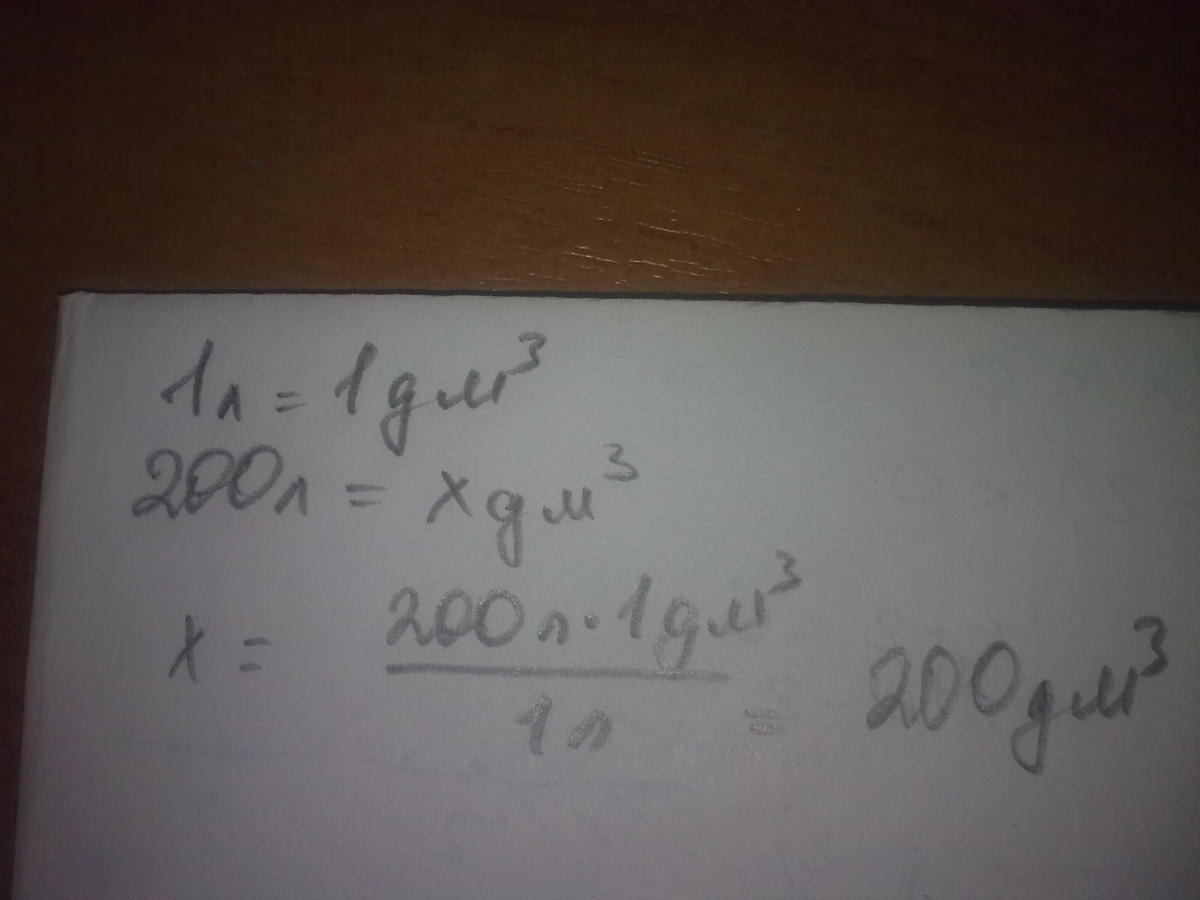 1л = 1дм³
200л = x дм³
x = 200л·1дм³ / 1л = 200дм³